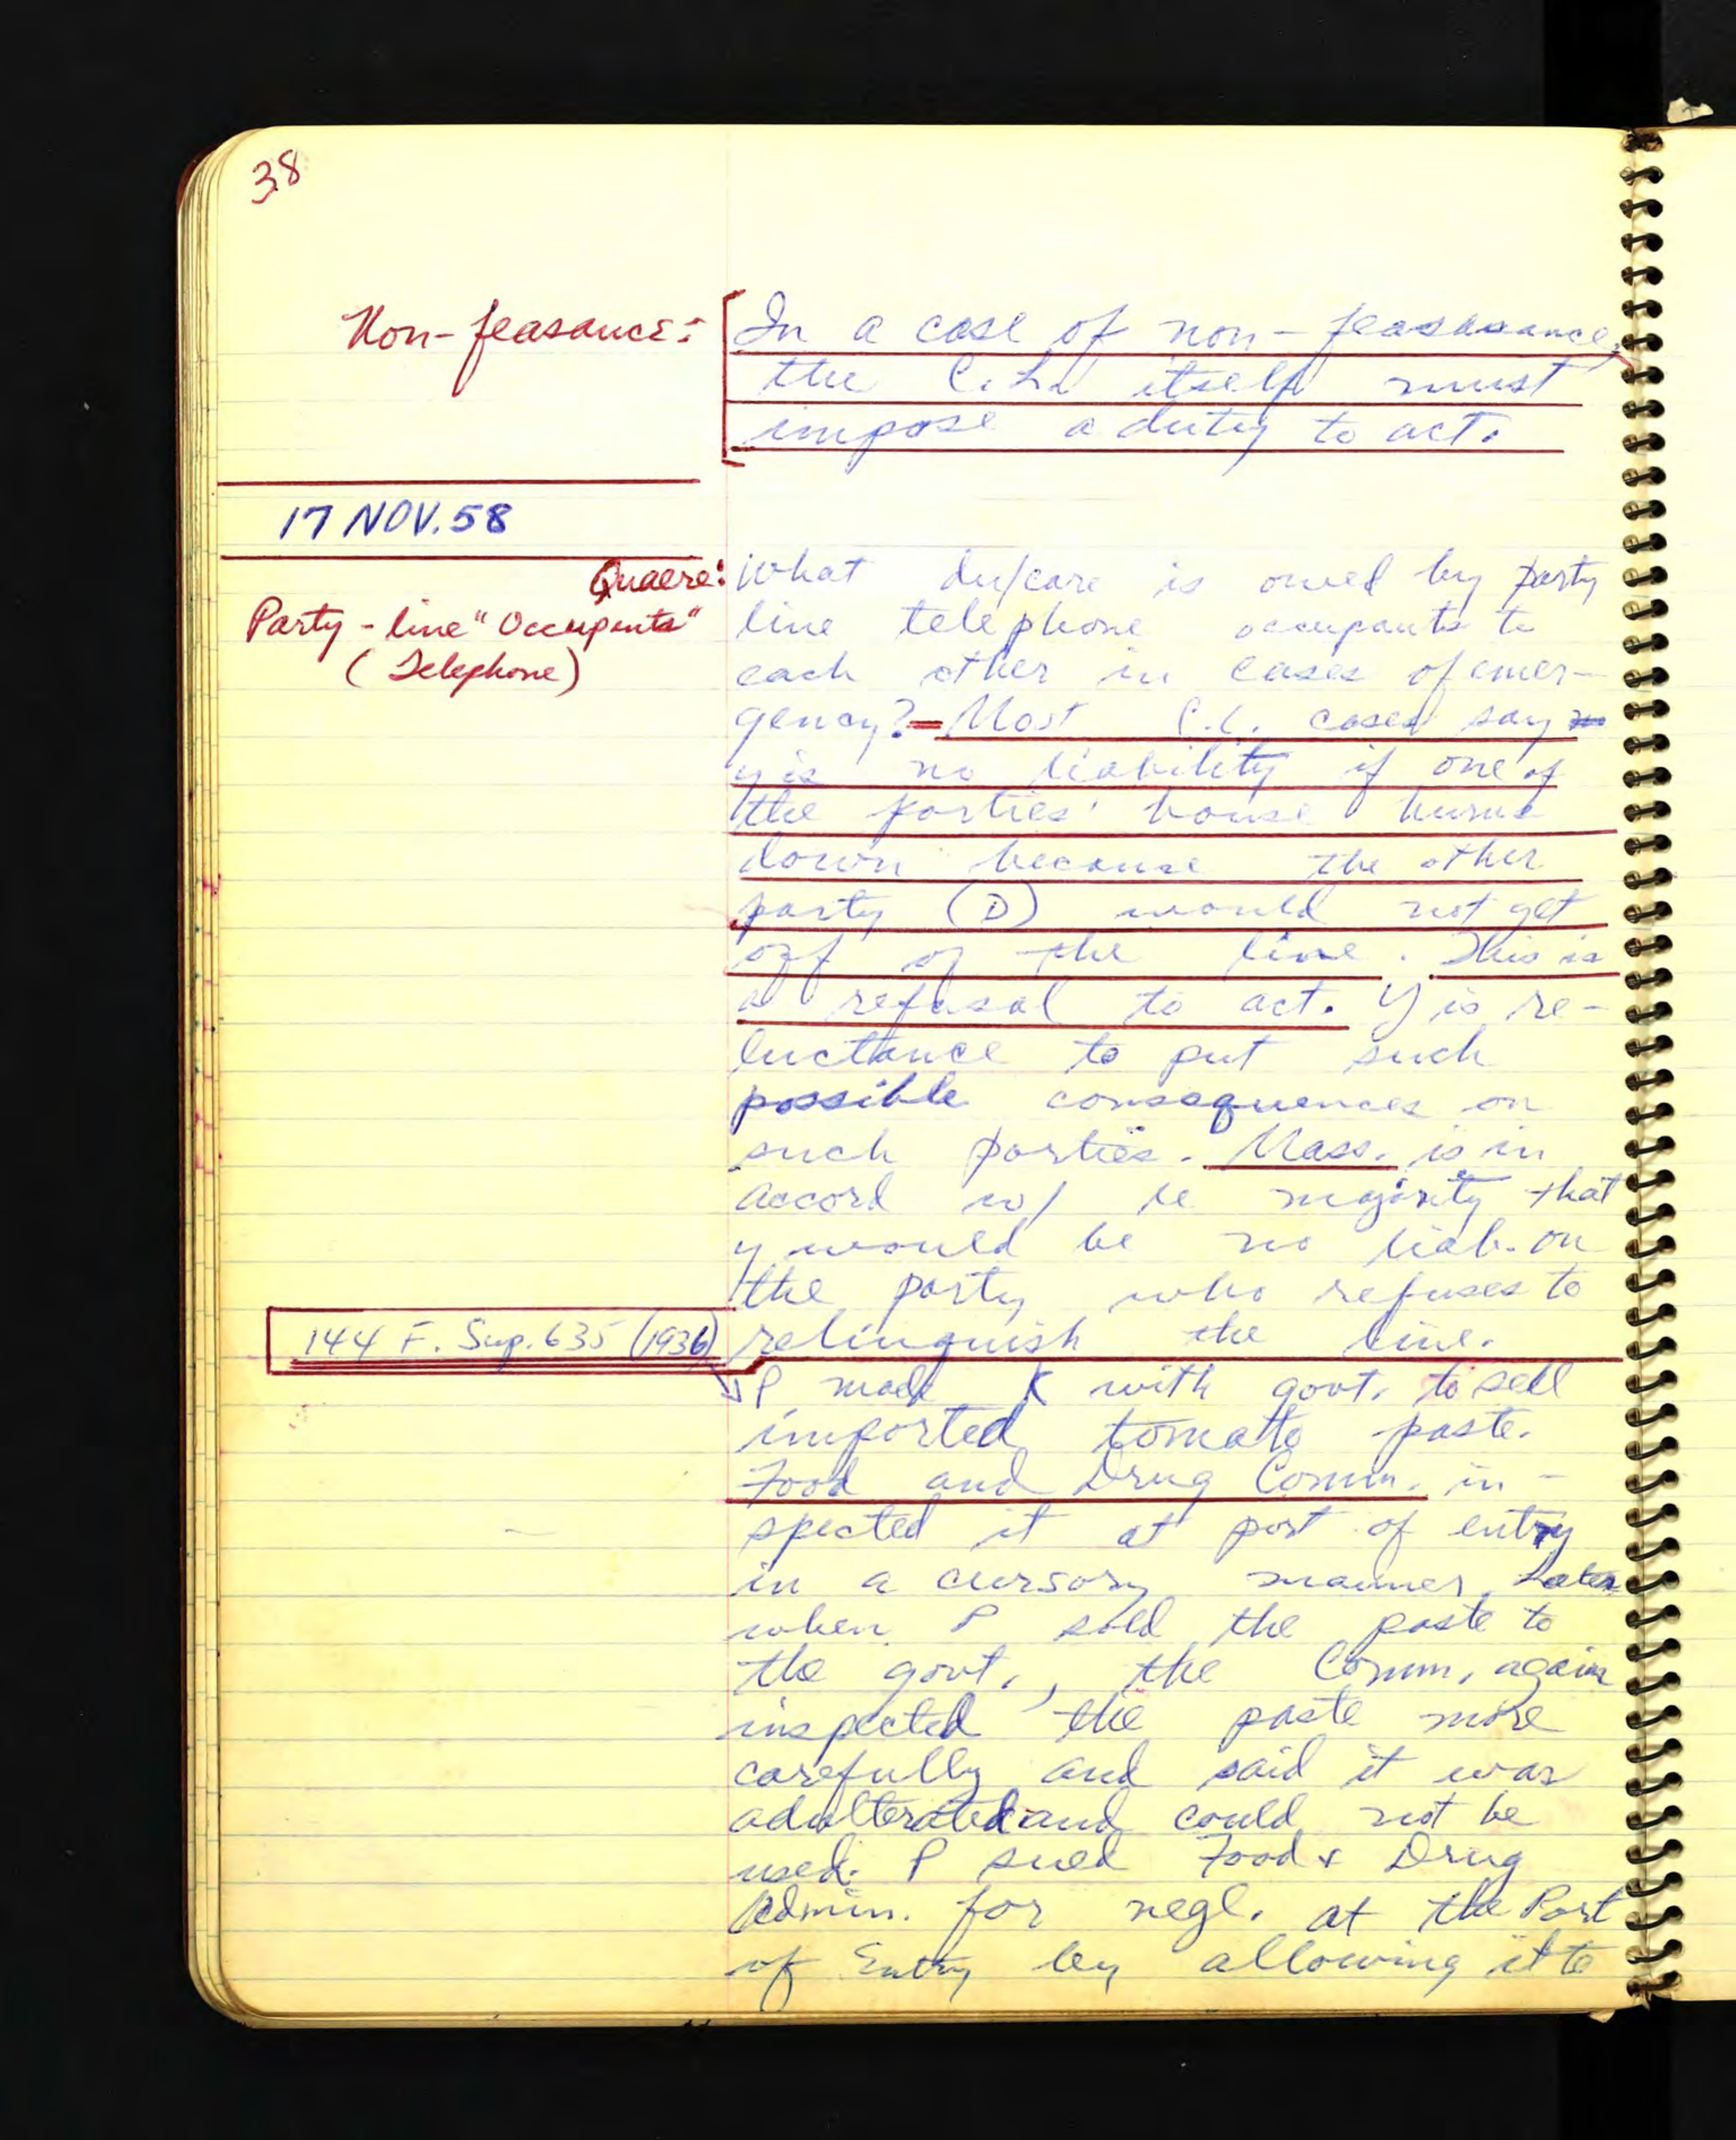 38
Non-feasance:
In a case of non-feasasance,
the C.L. itself must
impose a duty to act.
17 NOV. 58
Quaere:
Party-line "Occupants"
(Telephone)
What du/care is owed by party
line telephone occupants to
each other in cases of emer-
gency? - Most C.L. cases say
y is no liability if one of
the parties' house burns
down because the other
party (D) would not get
off of the line. This is
a refusal to act. Y is re-
luctance to put such
possible consequences on
such parties. Mass. is in
accord w/ te majority that
y would be no liab. on
the party who refuses to
relinquish the line.
144 F. Sup. 635 (1936)
P made K with govt. to sell
imported tomato paste.
Food and Drug Comm. in-
spected it at port of entry
in a cursory manner. Later
when P sold the paste to
the govt., the Comm, again
inspected the paste more
carefully and said it was
adulterated and could not be
used. P sued Food & Drug
Admin. for negl. at the Port
of Entry by allowing it to